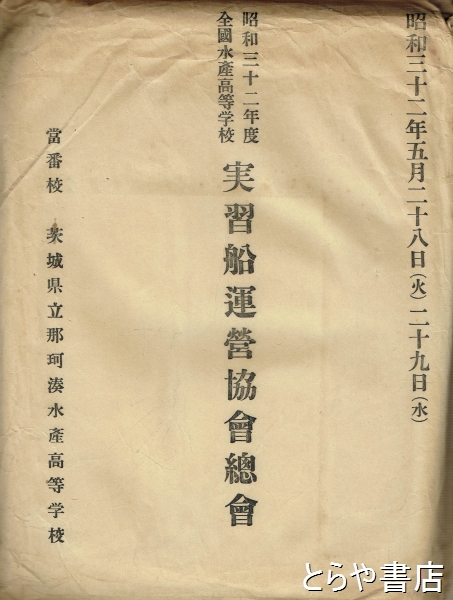 昭和三十二年五月二十八日（火）二十九日（水）
昭和三十二年度
全國水產高等学校
実習船運營協會總會
當番校　茨城県立那珂湊水產高等学校
とらや書店